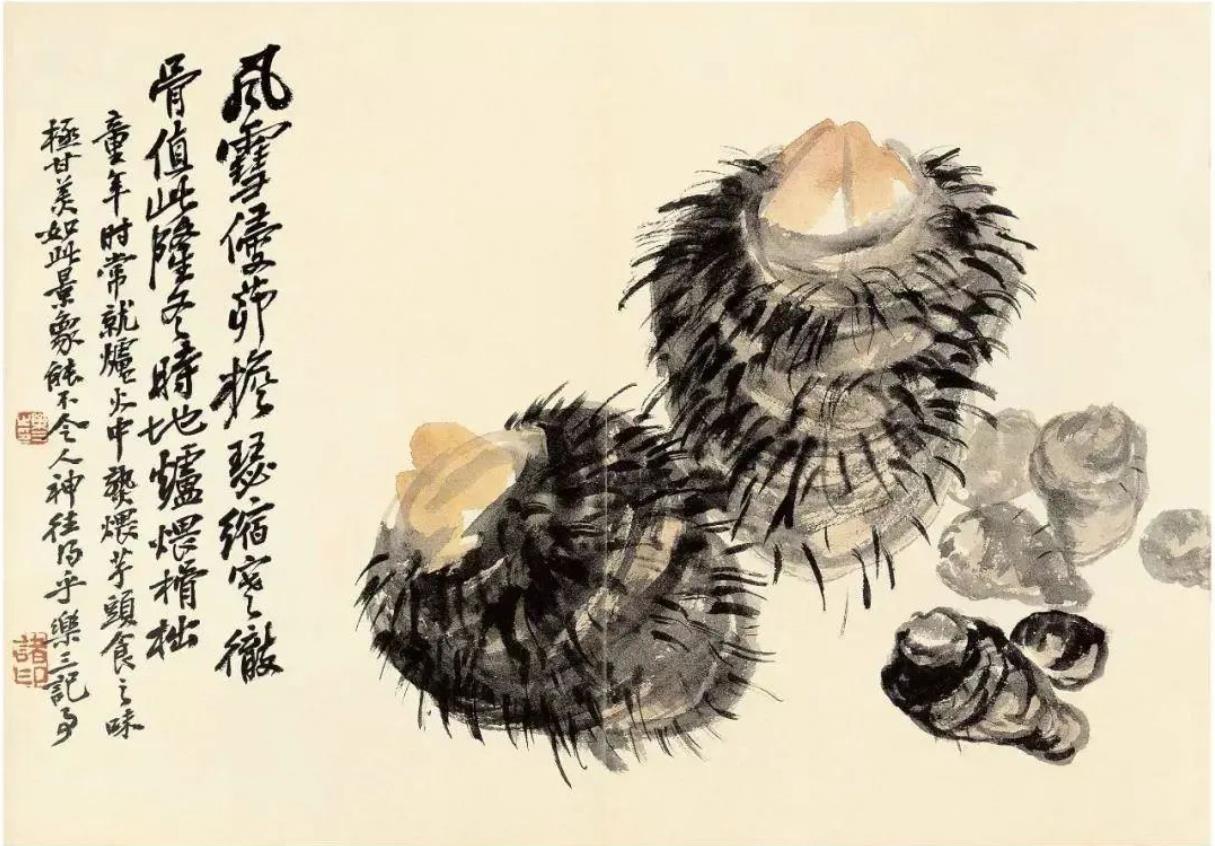 風雪侵茆檐瑟縮寒徹
骨值此隆冬時地爐煨榾柮
童年时常就爐火中爇煨芋頭食之味
極甘美如此景象能不令人神往乎樂三記
諸印